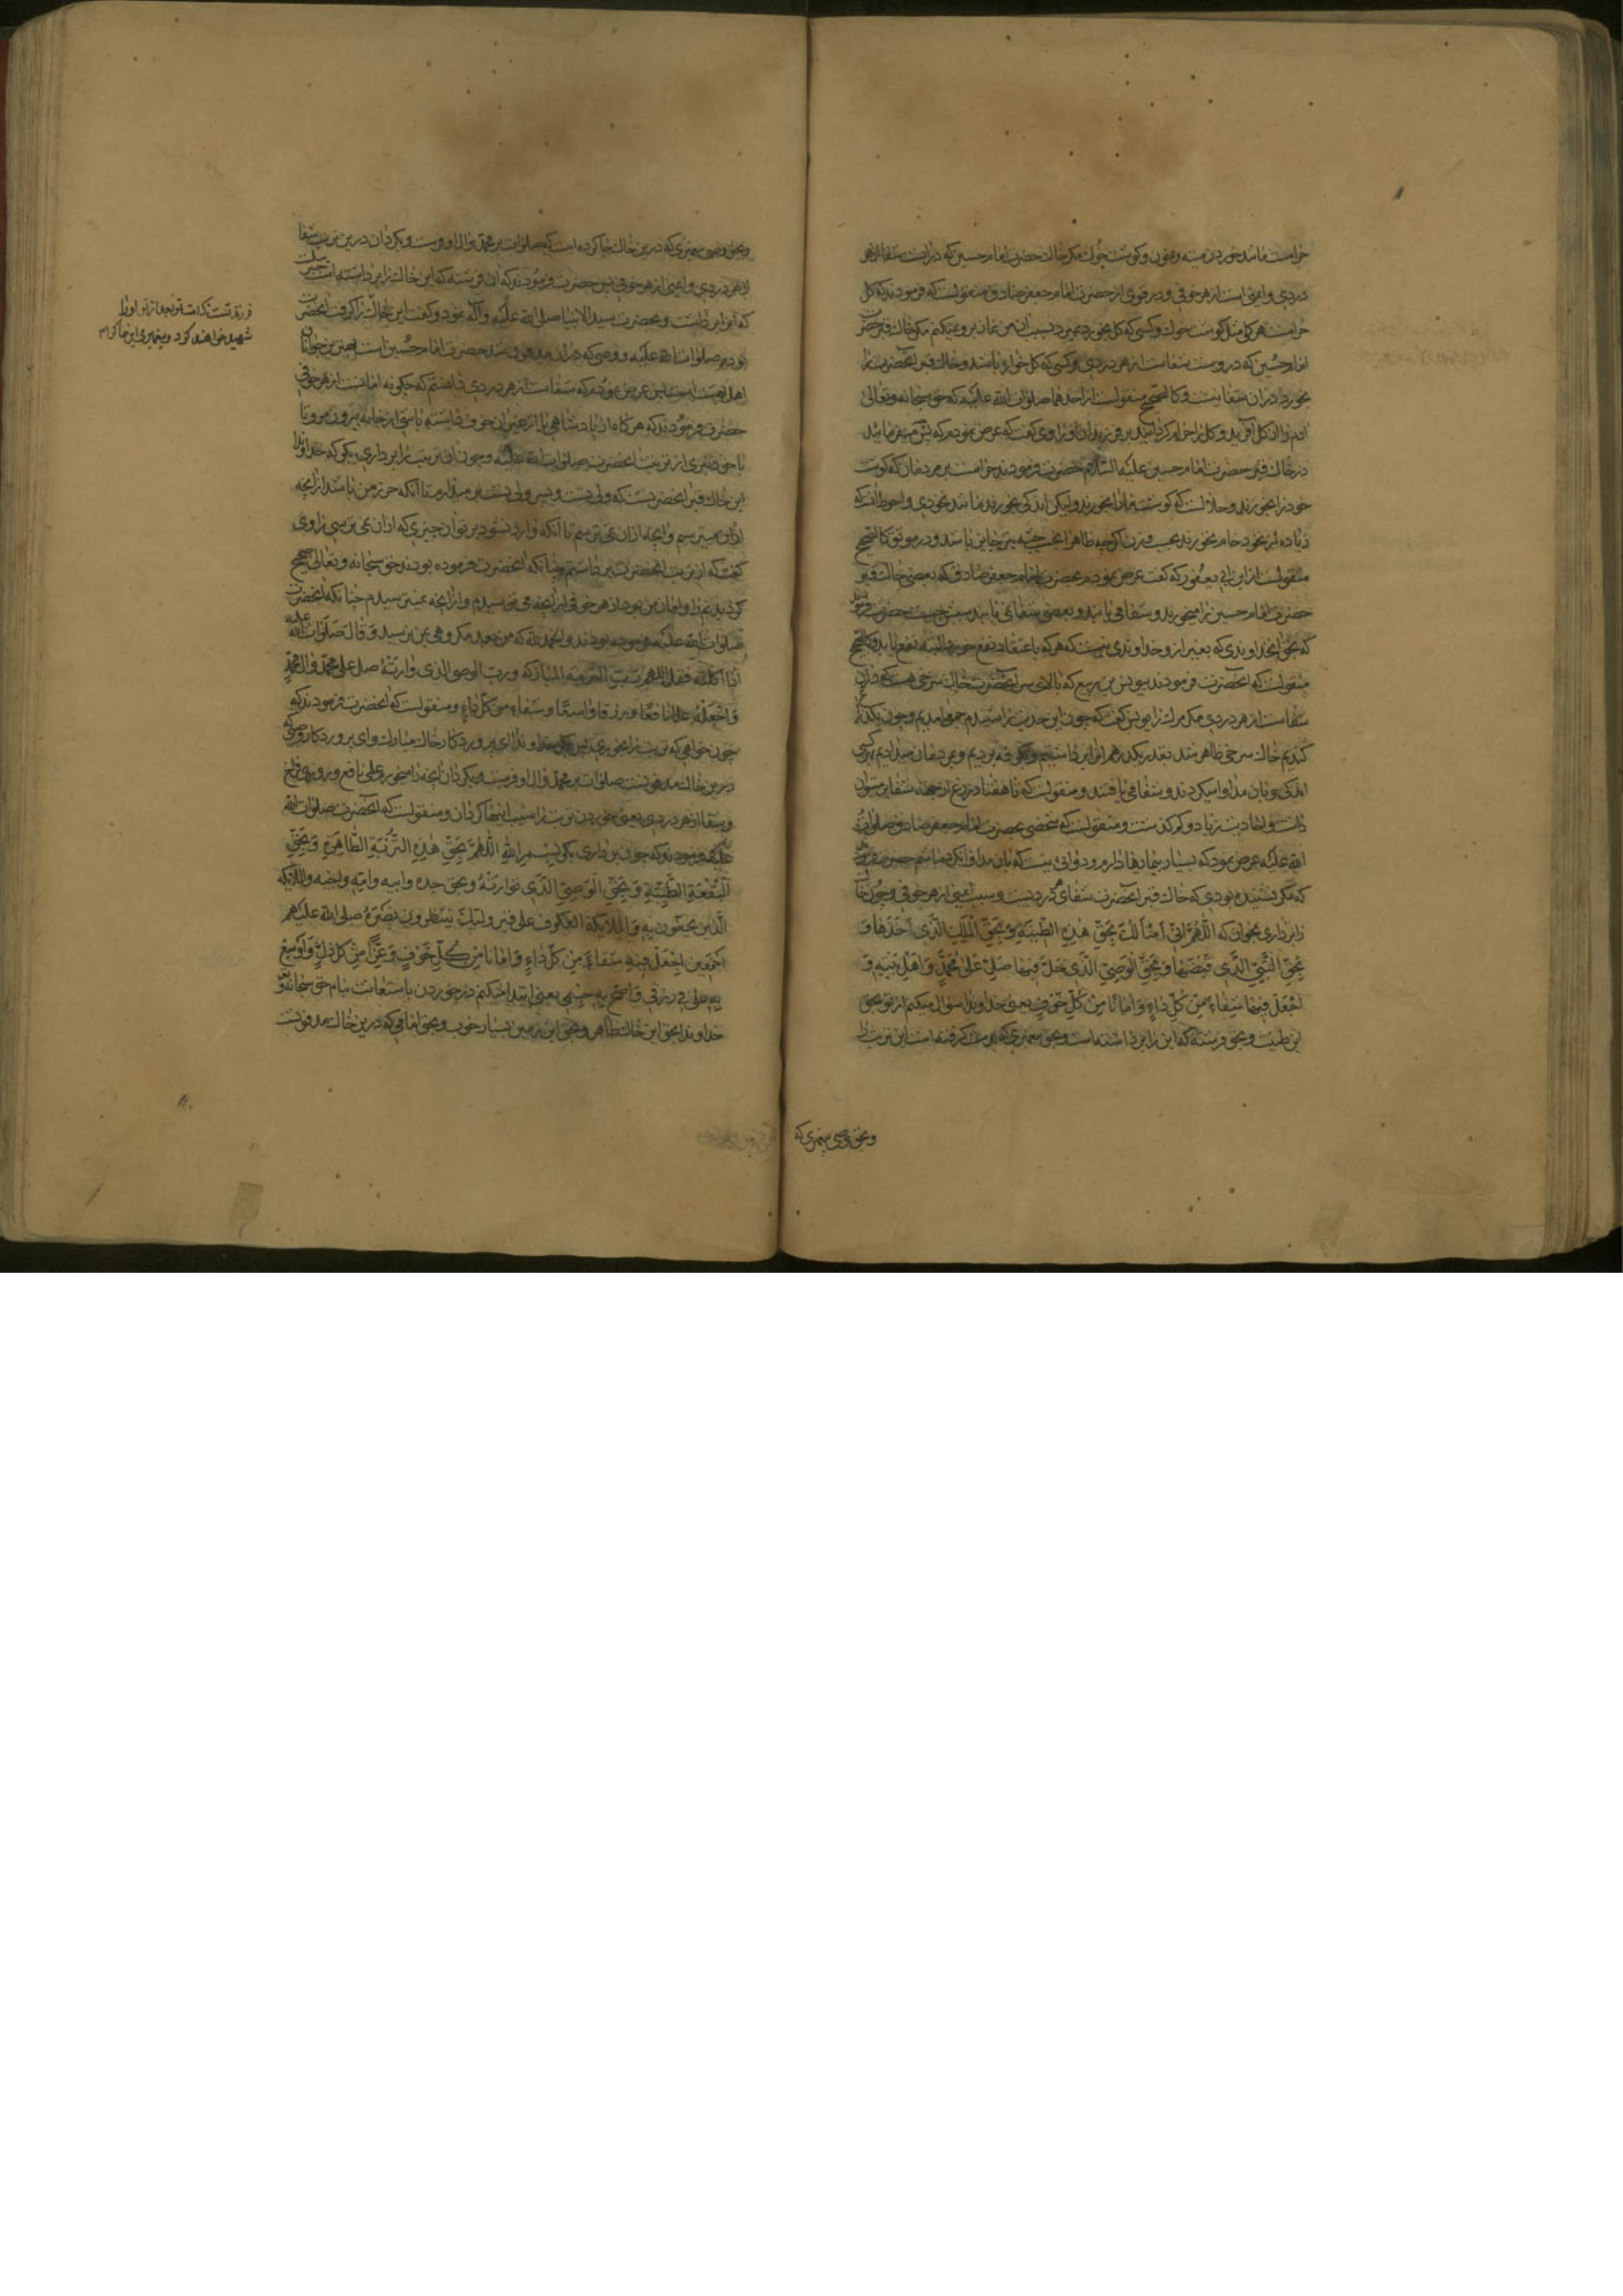 حرامست مانند خوردن میته و خون و گوشت خوک مکر خاک حضرت امام حسین که درانست شفا از هر
دردی و ایمنی است از هر خوفی و در قوی از حضرت امام جعفر صادق منقولست که فرمودند که کل
حرامست همکی مثل گوشت خوک و کسی که کل بخورد بمیرد بسبب آن من نماز برو نمیکنم مکر خاک قبر حضرت
امام حسین که دروست شفاست از هر دردی و کسی که کل خوار باشد و خاک قبر آنحضرت را
بخورد دران شفا نیست و کالصحیح منقولست از احدهما صلوات الله علیه که حق سبحانه و تعالی
آدم را از کل آفرید و کل را حرام کردانید بر فرزندان او راوی گفت که عرض نمودم که پس چه میفرمایند
در خاک قبر حضرت امام حسین علیه السلام حضرت فرمودند حرامست بر مردمان که گوشت
خود را بخورند و حلالست که گوشت ما را بخورند ولیکن اندکی بخورند مانند نخودی و احوط آنست که
زیاده از نخود خام نخورند بحسب وزن اکرچه ظاهرا بحسب جثه نیز جایز باشد و در موثق کالصحیح
منقولست از ابن ابی یعفور که گفت عرض نمودم بحضرت امام جعفر صادق که بعضی خاک قبر
حضرت امام حسین را میخورند و شفا می یابند و بعضی شفا نمی یابند سببش چیست حضرت فرمودند
که بحق آنخداوندی که بغیر از او خداوندی نیست که هر که باعتقاد نفع خورد البته نفع یابد و کالصحیح
منقولست که آنحضرت فرمودند بیونس بن ربیع که بالای سر آنحضرت خاک سرخی هست که دران
شفاست از هر دردی مکر مرک را یونس گفت که چون این حدیث را شنیدم جمعی آمدیم و چون یکذراع
کندیم خاک سرخی ظاهر شد بقدر یکدرهم ازان برداشتیم و بکوفه بردیم و بمردمان میدادیم هرکسی
اندکی و بان مداوا میکردند و شفا می یافتند و منقولست که تا هفتاد ذرع از جهة شفا بر میتوان
داشت و احادیث زیاده و کم کذشت و منقولست که شخصی بحضرت امام جعفر صادق صلوات
الله علیه عرض نمود که بسیار بیماریها دارم و دوائی نیست که بان مداوا نکرده باشم حضرت فرمود
که مکر نشنیده بودی که خاک قبر آنحضرت شفای هر دردیست و سبب ایمنی از هر خوفی و چون خاک
را برداری بخوان که اللهم انی اسألک بحق هذه الطینة و بحق الملک الذی اخذها و
بحق النبی الذی قبضها و بحق الوصی الذی حل فیها صل علی محمد و اهل بیته و
اجعل فیها شفاء من کل داء و امانا من کل خوف یعنی خداوندا سؤال میکنم از تو بحق
این طینت و بحق فرشته که این را برداشته است و بحق پیغمبری که بدست کرفته است این تربت را
و بحق وصی پیغمبری که
و بحق وصی پیغمبری که درین خاک جا کرده است که صلوات بر محمد و آل او فرست و بکردان درین تربت شفا
از هر دردی و ایمنی از هر خوفی پس حضرت فرمودند که آن فرشته که این خاک را برداشته است جبرئیلست
که این را برداشت و بحضرت سید الانبیا صلی الله علیه و آله نمود و گفت این خاک را کرفت آنحضرت
فرزند تست که امت تو بعد از تو او را
شهید خواهند کرد و پیغمبری این خاک
بود صلوات الله علیه و وصی که دران مدفون شد حضرت امام حسین است بهترین جوانان
اهل بهشت است پس عرض نمودم که شفاست از هر دردی دانستم که چکونه امانست از هر خوفی
حضرت فرمودند که هر کاه از پادشاهی یا از غیر آن خوف داشته باشی از خانه بیرون مرو تا
با خود نبری از تربت آنحضرت صلوات الله علیه و چون آن تربت را برداری بکو که خداوندا
این خاک قبر آنحضرتست که ولی تست و پسر ولی تست بر میدارم تا آنکه حرز من باشد از آنچه
ازان میترسم و آنچه ازان نمیترسم تا آنکه وارد نشود بر تو آن چیزی که ازان نمی ترسی راوی
گفت که از تربت آنحضرت برداشتم چنانکه آنحضرت فرموده بودند حق سبحانه و تعالی صحیح
کردانید بدنم را و امان من بود از هر خوفی از آنچه می ترسیدم و از آنچه نمیترسیدم چنانکه آنحضرت
صلوات الله علیه فرموده بودند و الحمد لله که من بعد مکروهی بمن نرسید و قال صلوات الله علیه
اذا اکلته فقل اللهم رب التربة المبارکة و رب الوصی الذی وارته صل علی محمد و آل محمد
و اجعله علما نافعا و رزقا واسعا و شفاء من کل داء و منقولست که آنحضرت فرمودند که
چون خواهی که تربت را بخوری پس بکو خداوندا ای پروردکار خاک مبارک و ای پروردکار وصی که
درین خاک مدفونست صلوات بر محمد و آل او فرست و بکردان آنچه را میخورم علمی نافع و روزی فراخ
و شفا از هر دردی یعنی خوردن تربت را سبب اینها کردان و منقولست که آنحضرت صلوات الله
علیه فرمودند که چون برداری بکو بسم الله اللهم بحق هذه التربة الطاهرة و بحق
البقعة الطیبة و بحق الوصی الذی تواریه و بحق جده و ابیه و امه و اخیه و الملائکة
الذین یحفون به و الملائکة العکوف علی قبر ولیک ینتظرون نصره صلی الله علیهم
اجمعین اجعل فیه شفاء من کل داء و امانا من کل خوف و عزا من کل ذل و اوسع
به علی فی رزقی و اصح به جسمی یعنی ابتدا میکنم در خوردن یا استعانت بنام حق سبحانه و تعالی
خداوندا بحق این خاک طاهر و بحق این زمین بسیار خوب و بحق امامی که درین خاک مدفونست